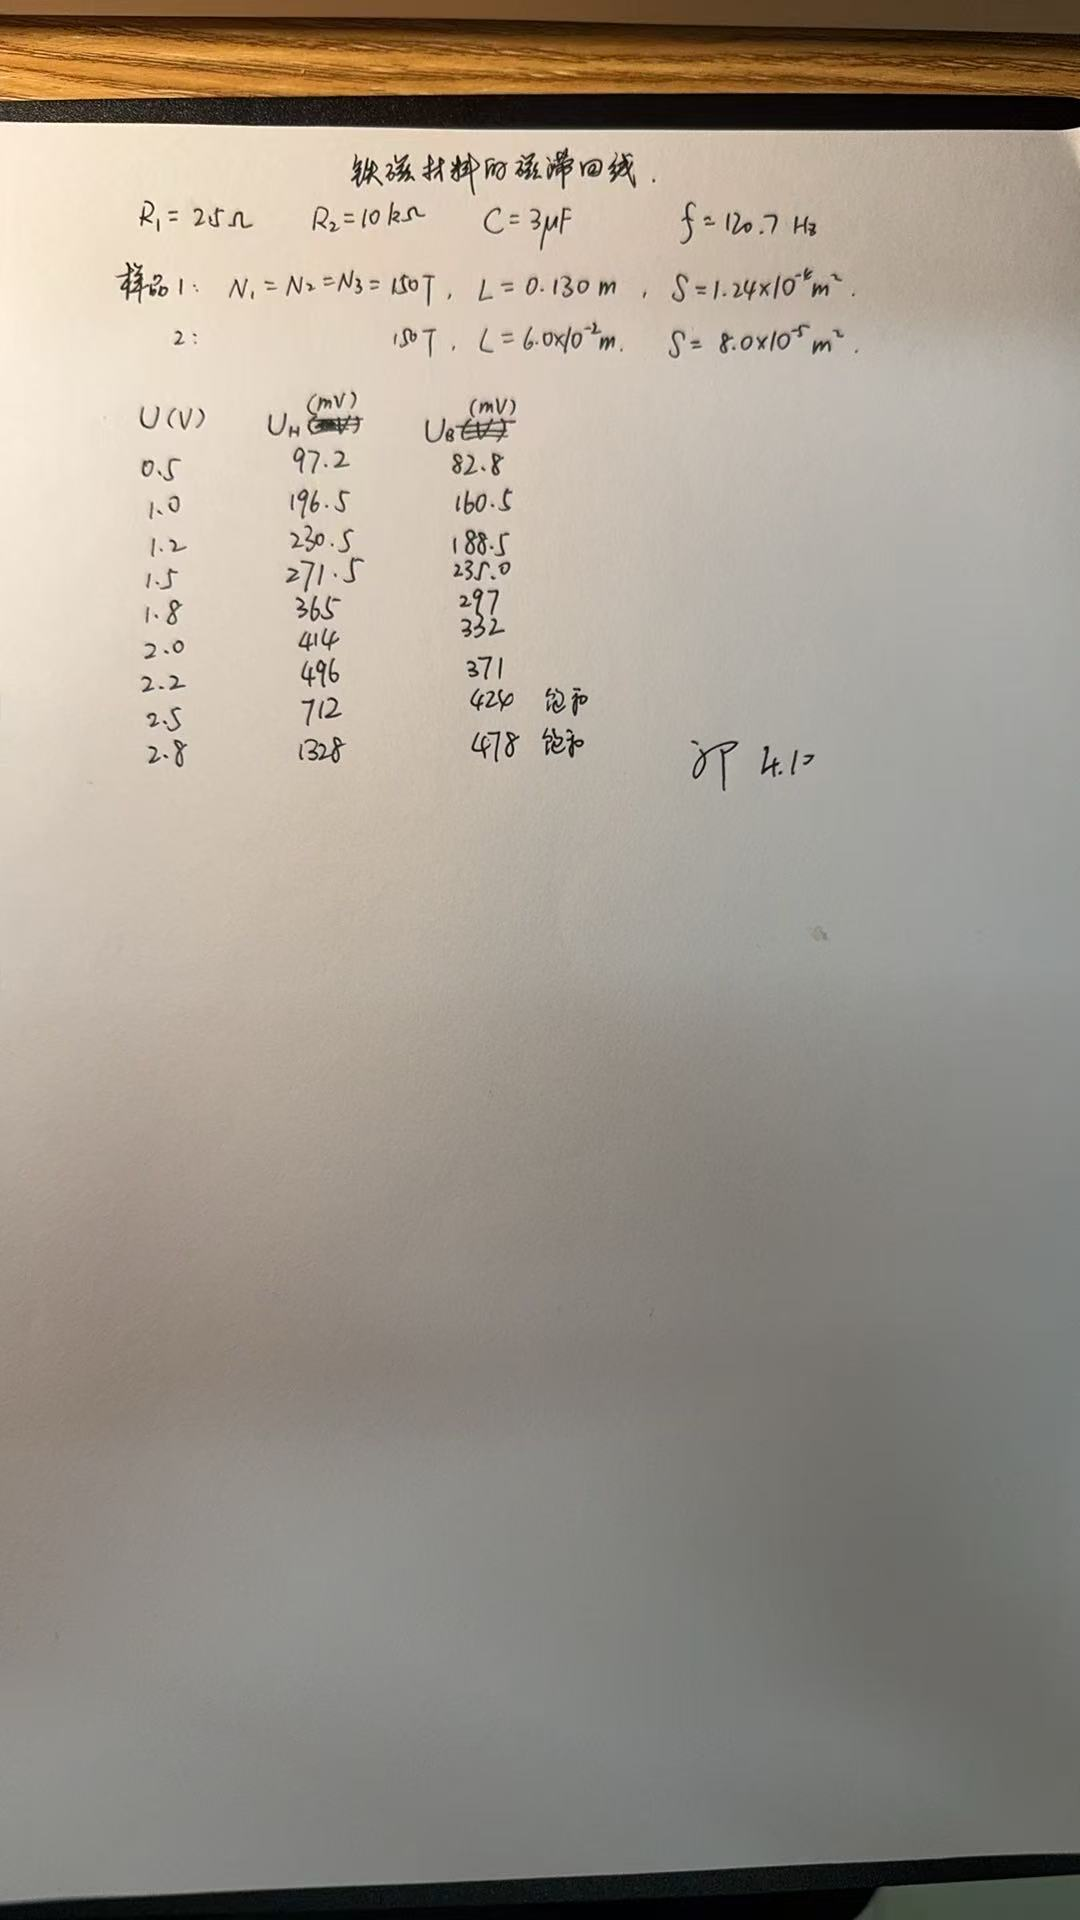 铁磁材料的磁滞回线.
R₁=25Ω R₂=10kΩ C=3μF f=120.7 Hz
样品1: N₁=N₂=N₃=150T, L=0.130m, S=1.24×10⁻⁴m².
2: 150T, L=6.0×10⁻²m. S=8.0×10⁻⁵m².
U(V) U_H (mV) U_B (mV)
0.5 97.2 82.8
1.0 196.5 160.5
1.2 230.5 188.5
1.5 271.5 235.0
1.8 365 297
2.0 414 332
2.2 496 371
2.5 712 424 饱和
2.8 1328 478 饱和